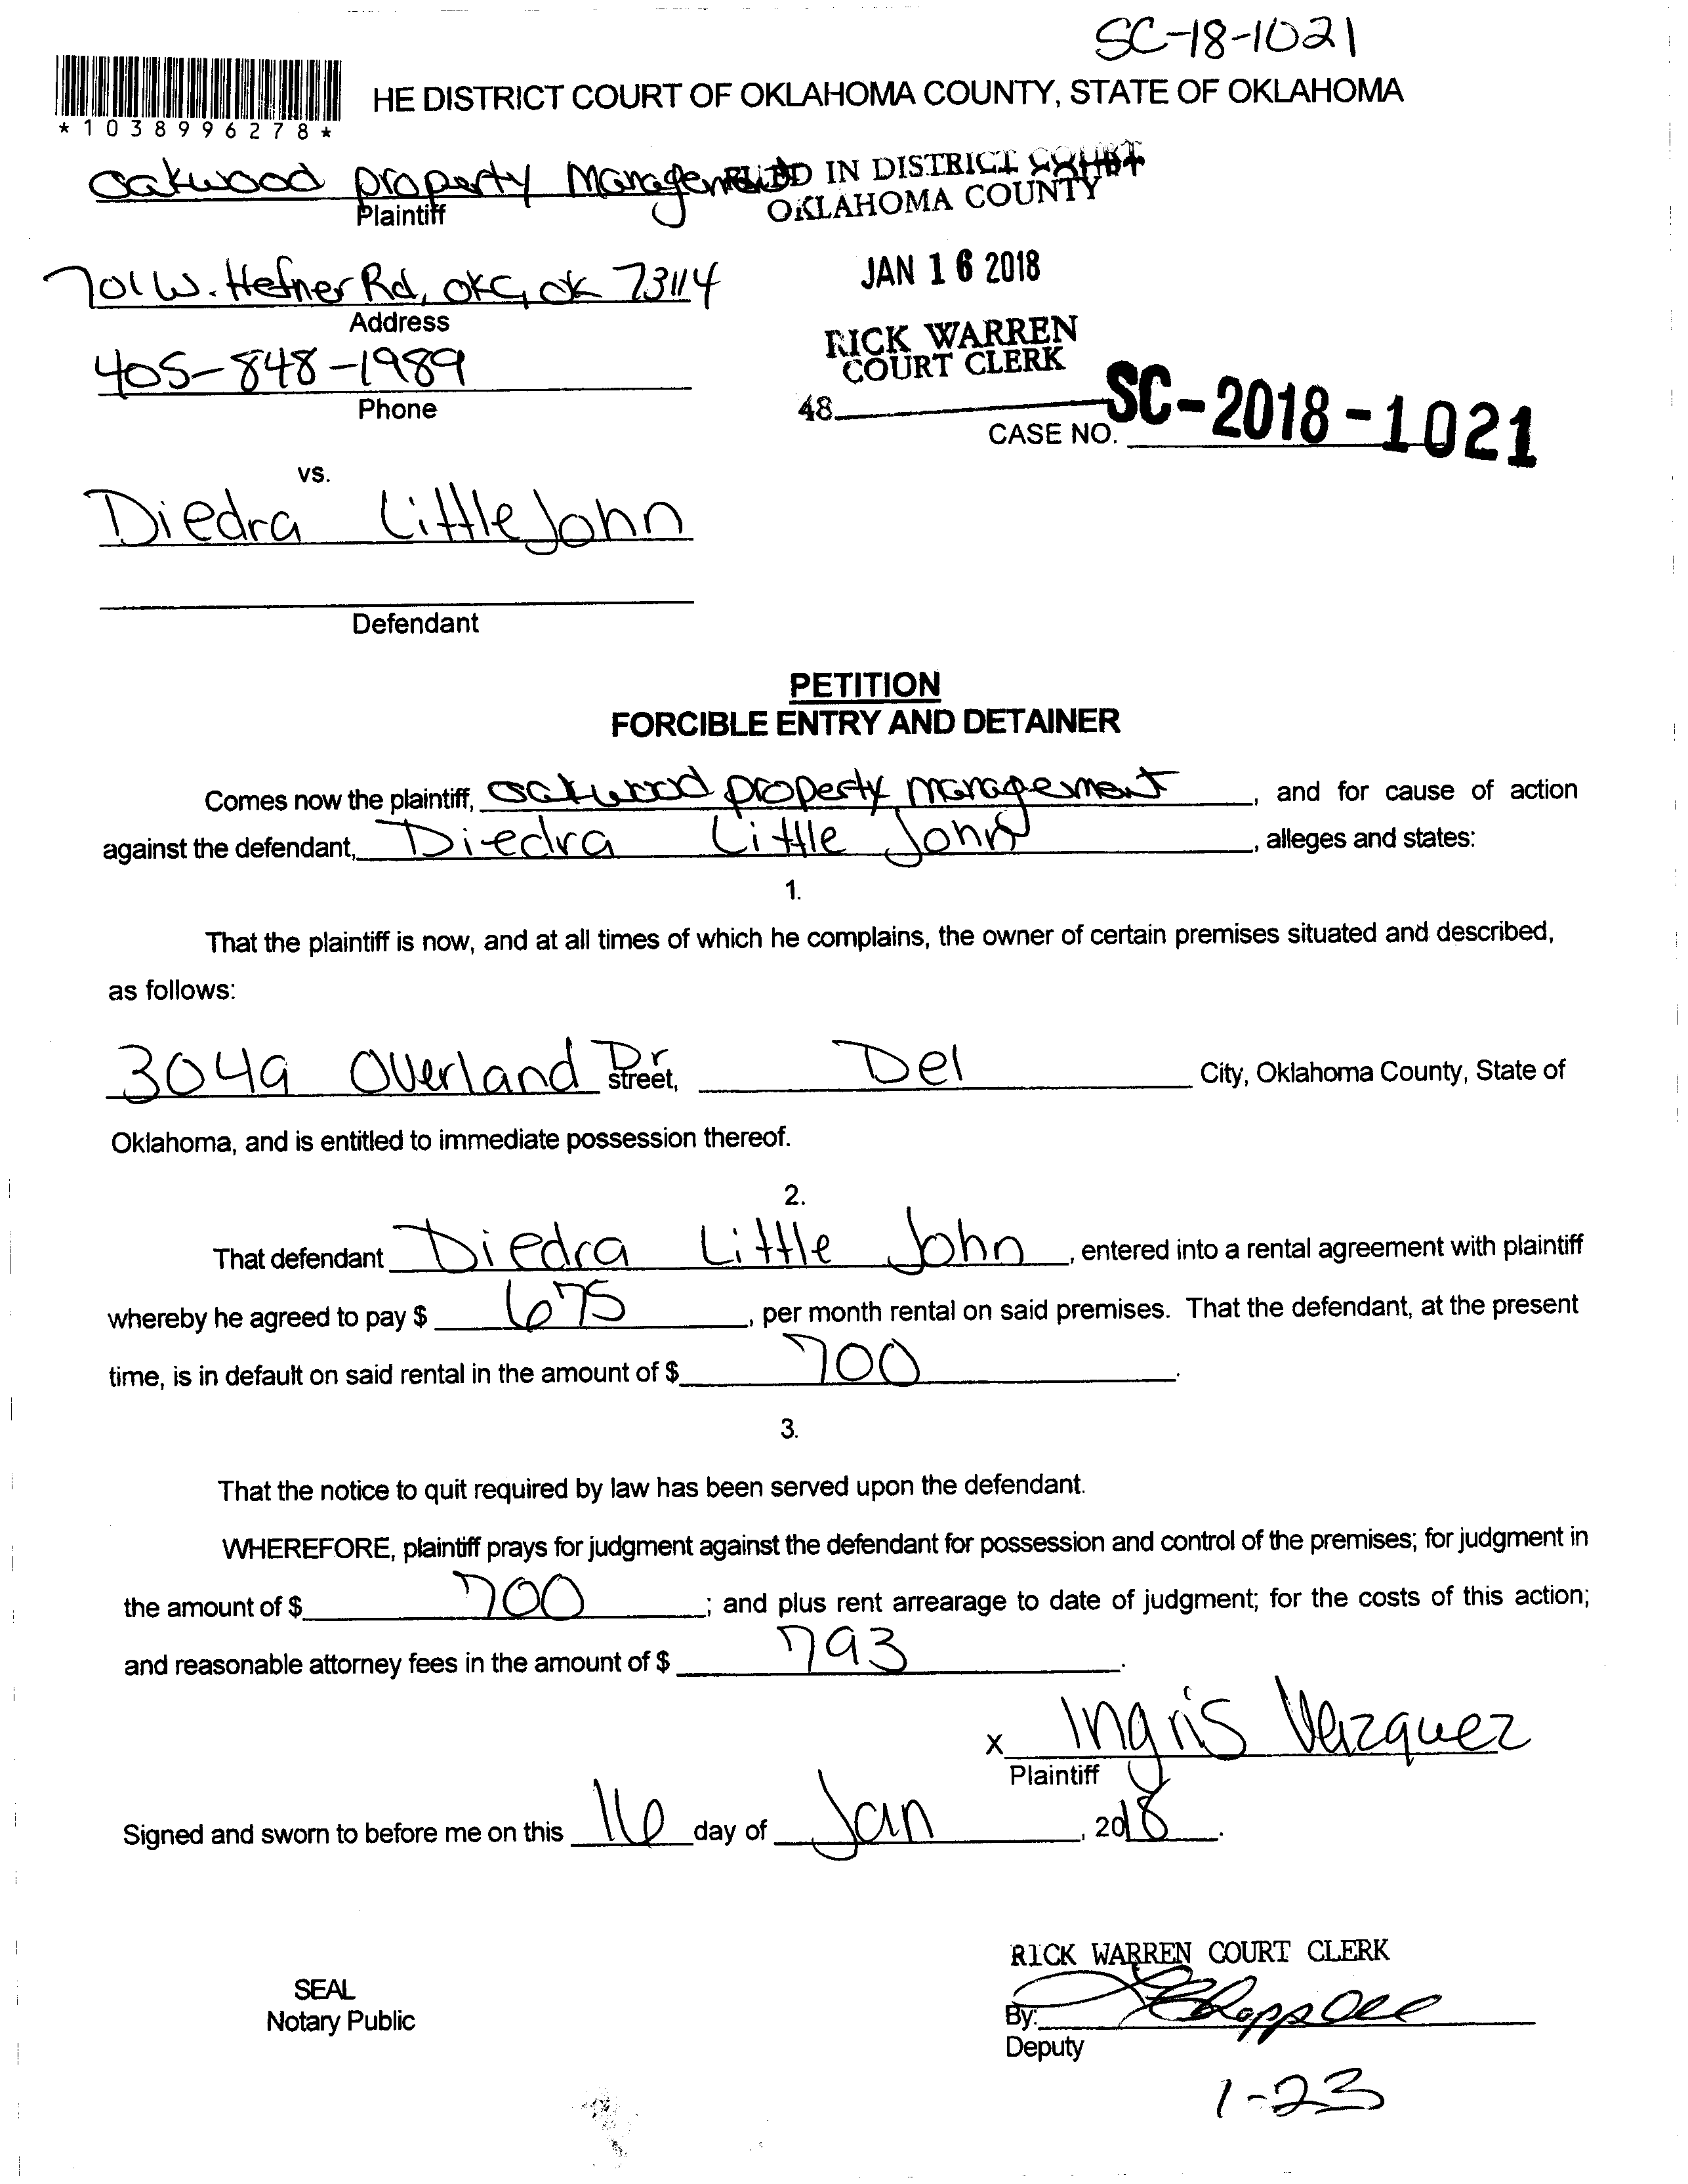 SC-18-1021
HE DISTRICT COURT OF OKLAHOMA COUNTY, STATE OF OKLAHOMA
*1038996278*
Oakwood property Management
FILED IN DISTRICT COURT
Plaintiff
OKLAHOMA COUNTY
701 W. Hefner Rd, OKC, OK 73114
JAN 16 2018
Address
RICK WARREN
COURT CLERK
405-848-1989
Phone
48
CASE NO. SC-2018-1021
vs.
Diedra LittleJohn
Defendant
PETITION
FORCIBLE ENTRY AND DETAINER
Comes now the plaintiff, Oakwood property management, and for cause of action
against the defendant, Diedra Little John, alleges and states:
1.
That the plaintiff is now, and at all times of which he complains, the owner of certain premises situated and described,
as follows:
3049 Overland Dr Street, Del City, Oklahoma County, State of
Oklahoma, and is entitled to immediate possession thereof.
2.
That defendant Diedra Little John, entered into a rental agreement with plaintiff
whereby he agreed to pay $ 675, per month rental on said premises. That the defendant, at the present
time, is in default on said rental in the amount of $ 700.
3.
That the notice to quit required by law has been served upon the defendant.
WHEREFORE, plaintiff prays for judgment against the defendant for possession and control of the premises; for judgment in
the amount of $ 700; and plus rent arrearage to date of judgment; for the costs of this action;
and reasonable attorney fees in the amount of $ 793.
x Ingris Vazquez
Plaintiff
Signed and sworn to before me on this 16 day of Jan, 2018.
RICK WARREN COURT CLERK
SEAL
Notary Public
By:
Deputy
1-23